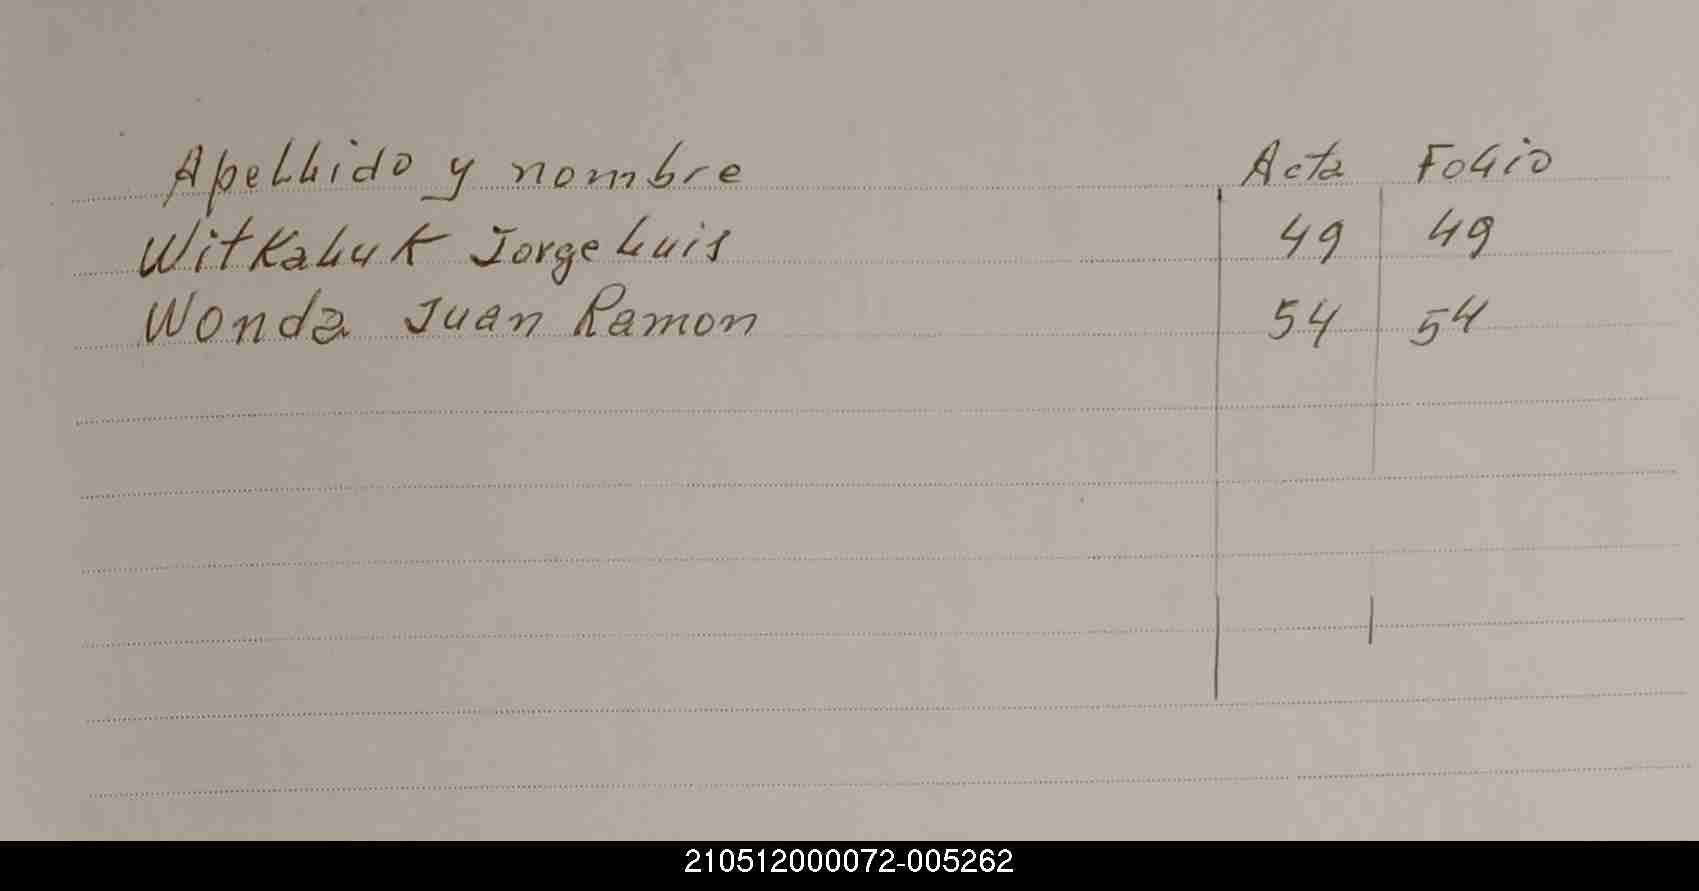 Apellido y nombre Acta Folio
Witkaluk Jorge Luis 49 49
Wonda Juan Ramon 54 54
210512000072-005262